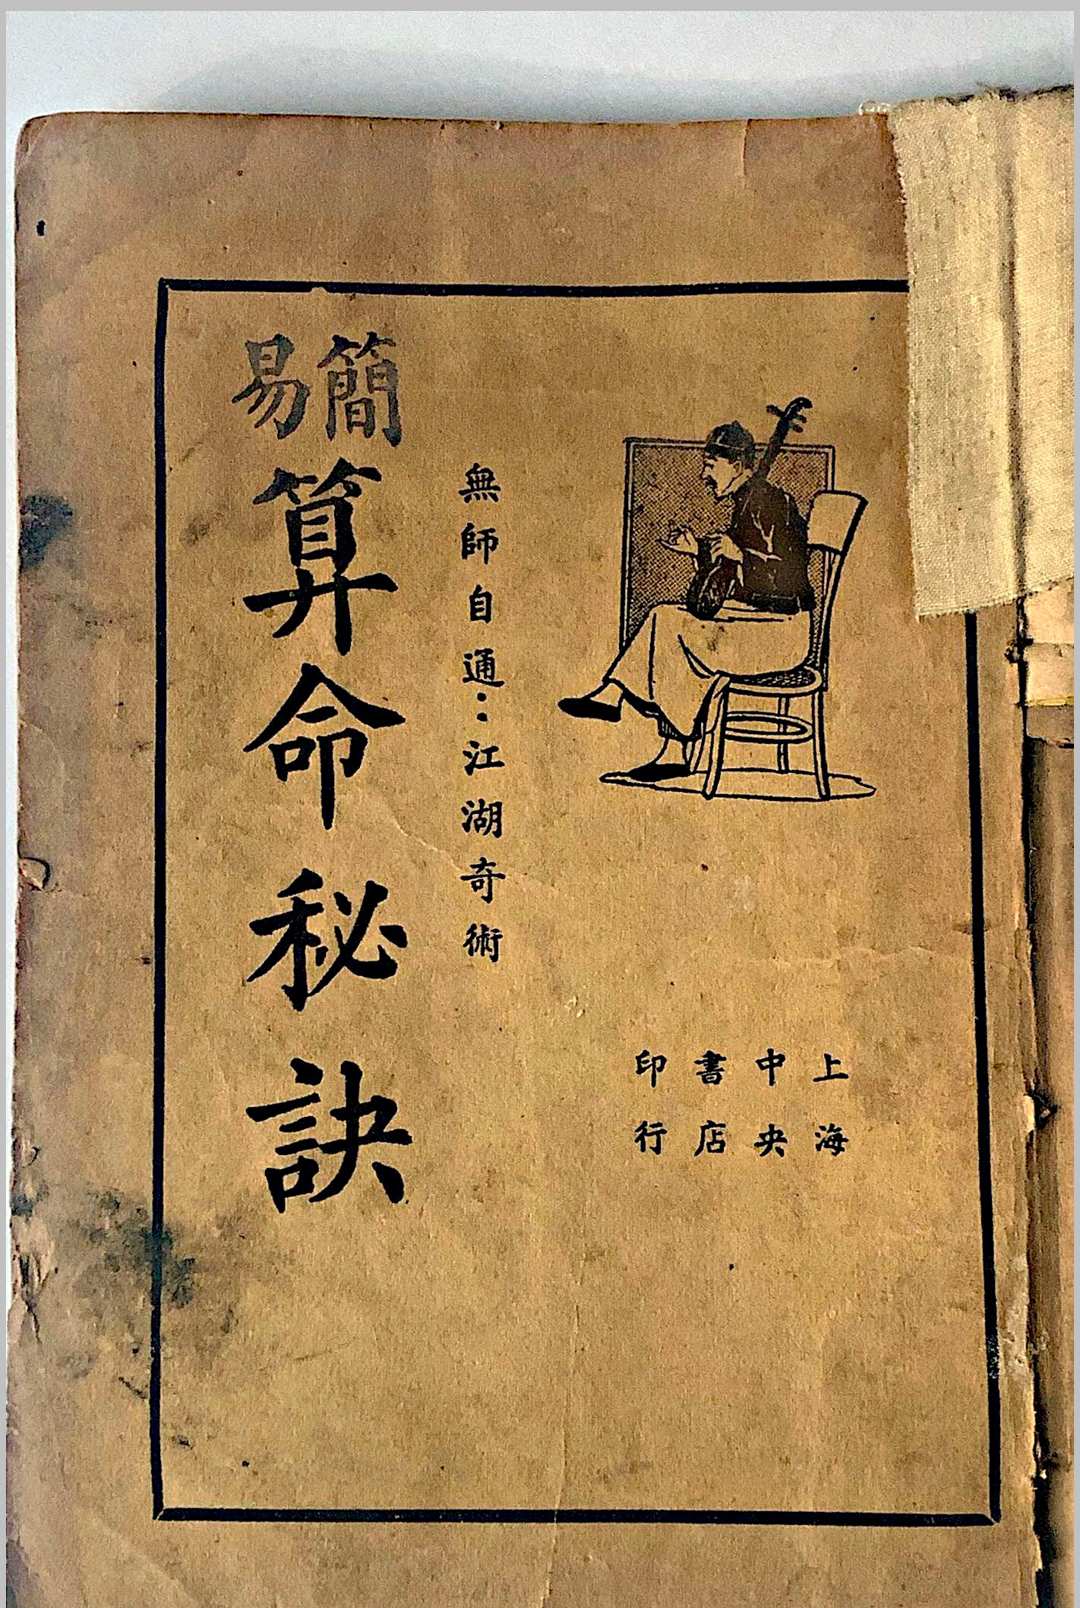 上海
中央
書店
印行
無師自通：江湖奇術
簡易
算命秘訣